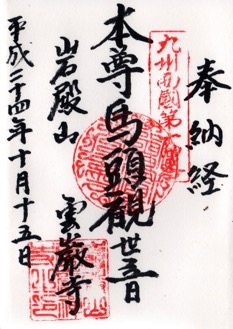 奉納経
九州西國第一
本尊馬頭観世音
岩殿山
雲巌寺
平成二十四年十月十五日